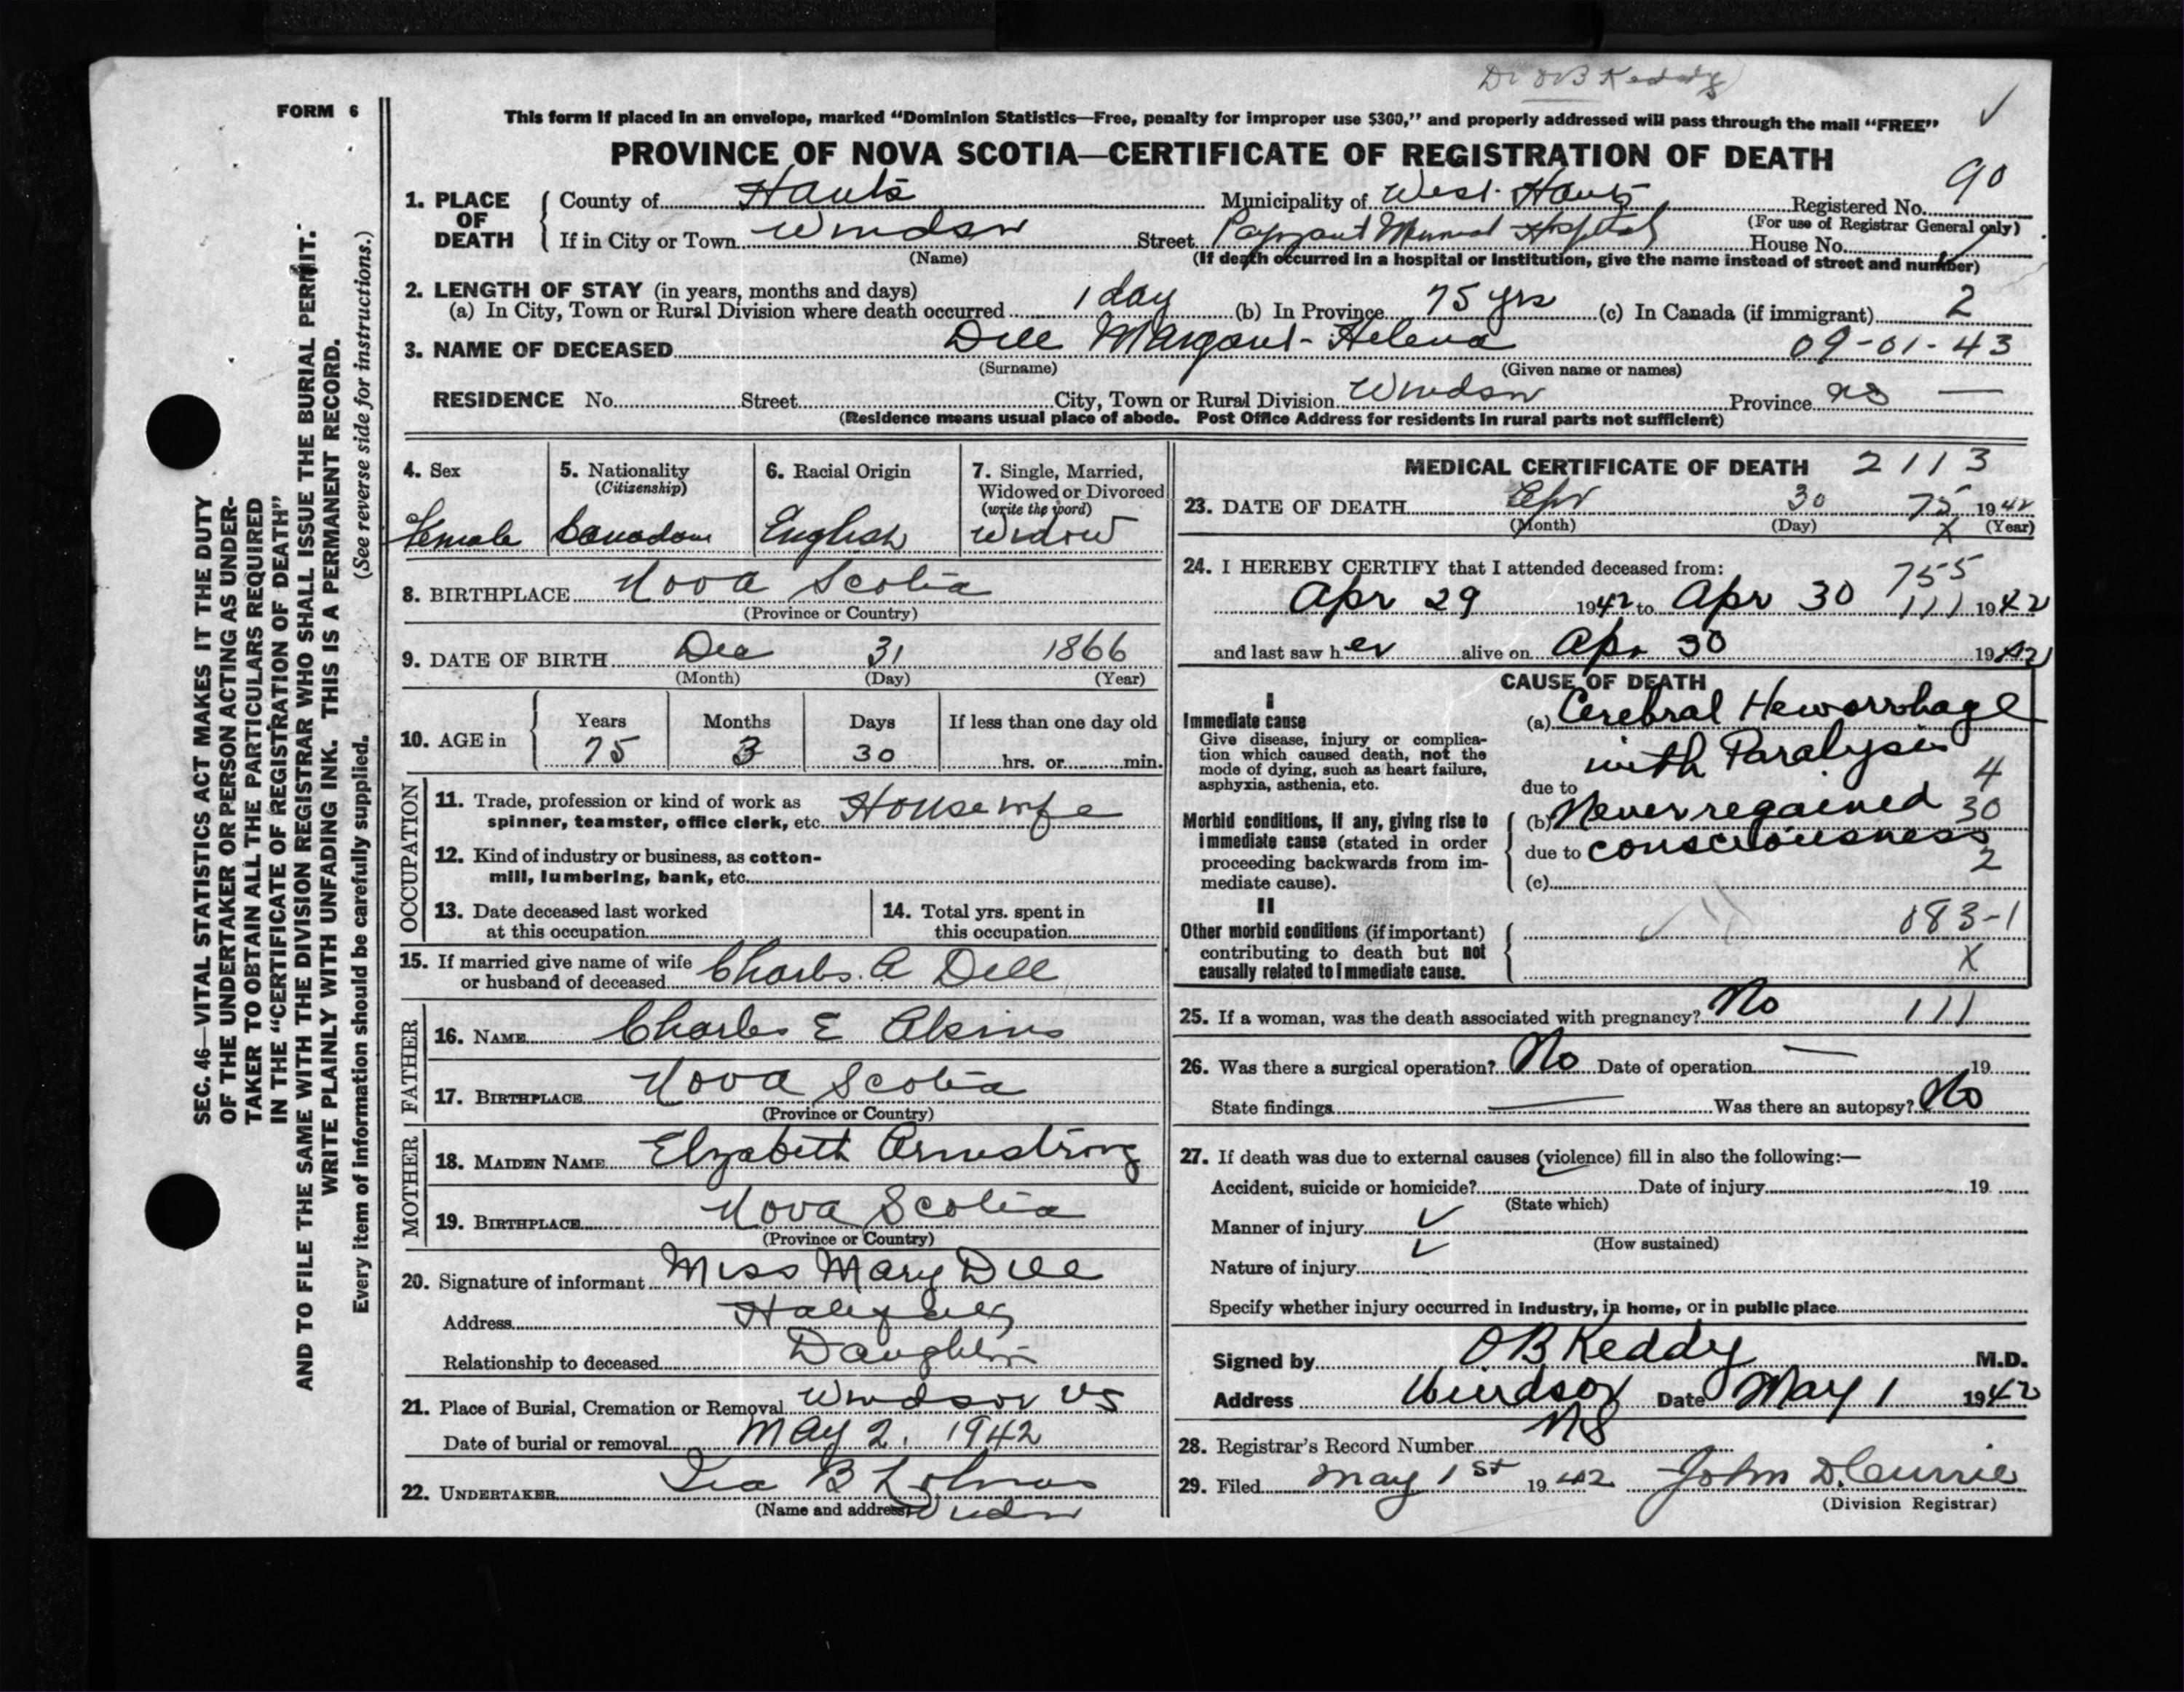 Dr OB Keddy
FORM 6
This form if placed in an envelope, marked "Dominion Statistics—Free, penalty for improper use $300," and properly addressed will pass through the mail "FREE"
PROVINCE OF NOVA SCOTIA—CERTIFICATE OF REGISTRATION OF DEATH
1. PLACE OF DEATH
County of Hants Municipality of West Hants Registered No. 90
(For use of Registrar General only)
If in City or Town Windsor Street Payzant Memorial Hospital House No.
(Name) (If death occurred in a hospital or institution, give the name instead of street and number)
2. LENGTH OF STAY (in years, months and days)
(a) In City, Town or Rural Division where death occurred 1 day (b) In Province 75 yrs (c) In Canada (if immigrant) 2
3. NAME OF DECEASED Dill Margaret Helena 09-01-43
(Surname) (Given name or names)
RESIDENCE No. Street City, Town or Rural Division Windsor Province NS —
(Residence means usual place of abode. Post Office Address for residents in rural parts not sufficient)
4. Sex
Female
5. Nationality
(Citizenship)
Canadian
6. Racial Origin
English
7. Single, Married,
Widowed or Divorced
(write the word)
Widow
8. BIRTHPLACE Nova Scotia
(Province or Country)
9. DATE OF BIRTH Dec 31 1866
(Month) (Day) (Year)
10. AGE in
Years Months Days If less than one day old
75 3 30 hrs. or min.
OCCUPATION
11. Trade, profession or kind of work as
spinner, teamster, office clerk, etc. Housewife
12. Kind of industry or business, as cotton-
mill, lumbering, bank, etc.
13. Date deceased last worked
at this occupation
14. Total yrs. spent in
this occupation
15. If married give name of wife
or husband of deceased Charles A Dill
FATHER
16. NAME Charles E Akins
17. BIRTHPLACE Nova Scotia
(Province or Country)
MOTHER
18. MAIDEN NAME Elizabeth Armstrong
19. BIRTHPLACE Nova Scotia
(Province or Country)
20. Signature of informant Miss Mary Dill
Address Halifax
Relationship to deceased Daughter
21. Place of Burial, Cremation or Removal Windsor NS
Date of burial or removal May 2, 1942
22. UNDERTAKER Ira B
(Name and address) Windsor
MEDICAL CERTIFICATE OF DEATH 2113
23. DATE OF DEATH Apr 30 75 1942
(Month) (Day) X (Year)
24. I HEREBY CERTIFY that I attended deceased from:
755
Apr 29 1942 to Apr 30 111 1942
and last saw her alive on Apr 30 1942
CAUSE OF DEATH
I
Immediate cause
Give disease, injury or complica-
tion which caused death, not the
mode of dying, such as heart failure,
asphyxia, asthenia, etc.
(a) Cerebral Hemorrhage
with Paralysis
due to 4
Morbid conditions, if any, giving rise to
immediate cause (stated in order
proceeding backwards from im-
mediate cause).
(b) Never regained 30
due to consciousness
2
(c)
II
Other morbid conditions (if important)
contributing to death but not
causally related to immediate cause.
083-1
X
25. If a woman, was the death associated with pregnancy? No 111
26. Was there a surgical operation? No Date of operation — 19
State findings — Was there an autopsy? No
27. If death was due to external causes (violence) fill in also the following:—
Accident, suicide or homicide? Date of injury 19
(State which)
Manner of injury
(How sustained)
Nature of injury
Specify whether injury occurred in industry, in home, or in public place
Signed by OB Keddy M.D.
Address Windsor Date May 1 1942
NS
28. Registrar's Record Number
29. Filed May 1st 1942 John D. Currie
(Division Registrar)
SEC. 46—VITAL STATISTICS ACT MAKES IT THE DUTY
OF THE UNDERTAKER OR PERSON ACTING AS UNDER-
TAKER TO OBTAIN ALL THE PARTICULARS REQUIRED
IN THE "CERTIFICATE OF REGISTRATION OF DEATH"
AND TO FILE THE SAME WITH THE DIVISION REGISTRAR WHO SHALL ISSUE THE BURIAL PERMIT.
WRITE PLAINLY WITH UNFADING INK. THIS IS A PERMANENT RECORD.
Every item of information should be carefully supplied. (See reverse side for instructions.)